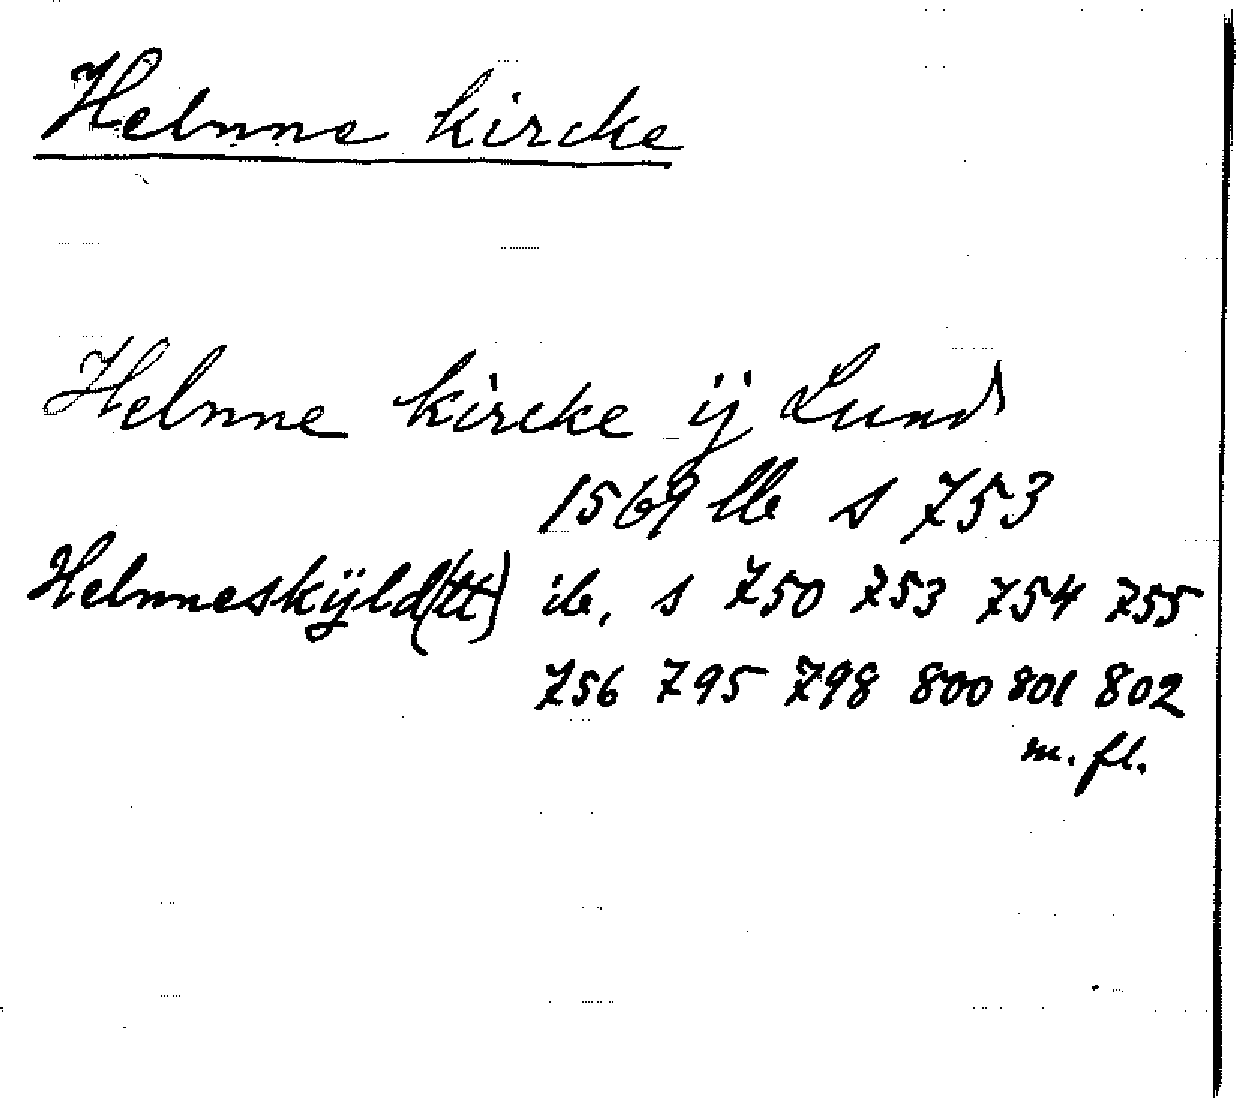 Helnne kircke
Helnne kircke ij Lund
1569 llb s 753
Helnneskÿld(tt) ib, s 750 753 754 755
756 795 798 800 801 802
m. fl.